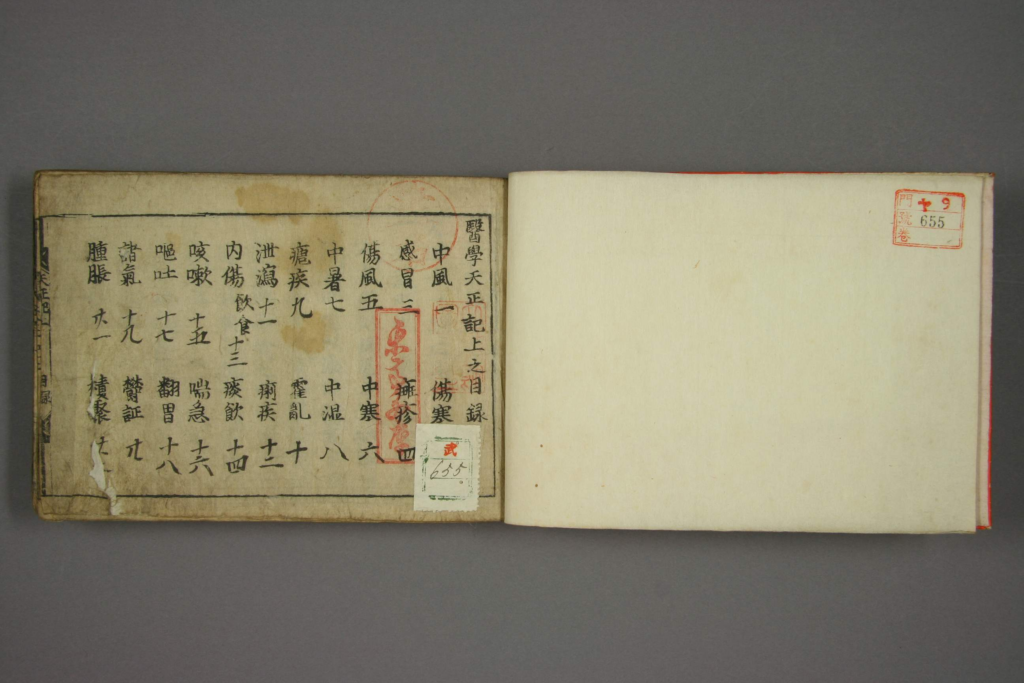 ヤ 9
門
號 655
卷
醫學天正記上之目録
中風 一 傷寒
感冒 三 痳疹 四
傷風 五 中寒 六
中暑 七 中湿 八
瘧疾 九 霍乱 十
泄瀉 十一 痢疾 十二
内傷 飲食 十三 痰飲 十四
咳嗽 十五 喘急 十六
嘔吐 十七 翻胃 十八
諸氣 十九 鬱証 廿
腫脹 廿一 積聚
武
655
天正記 目録